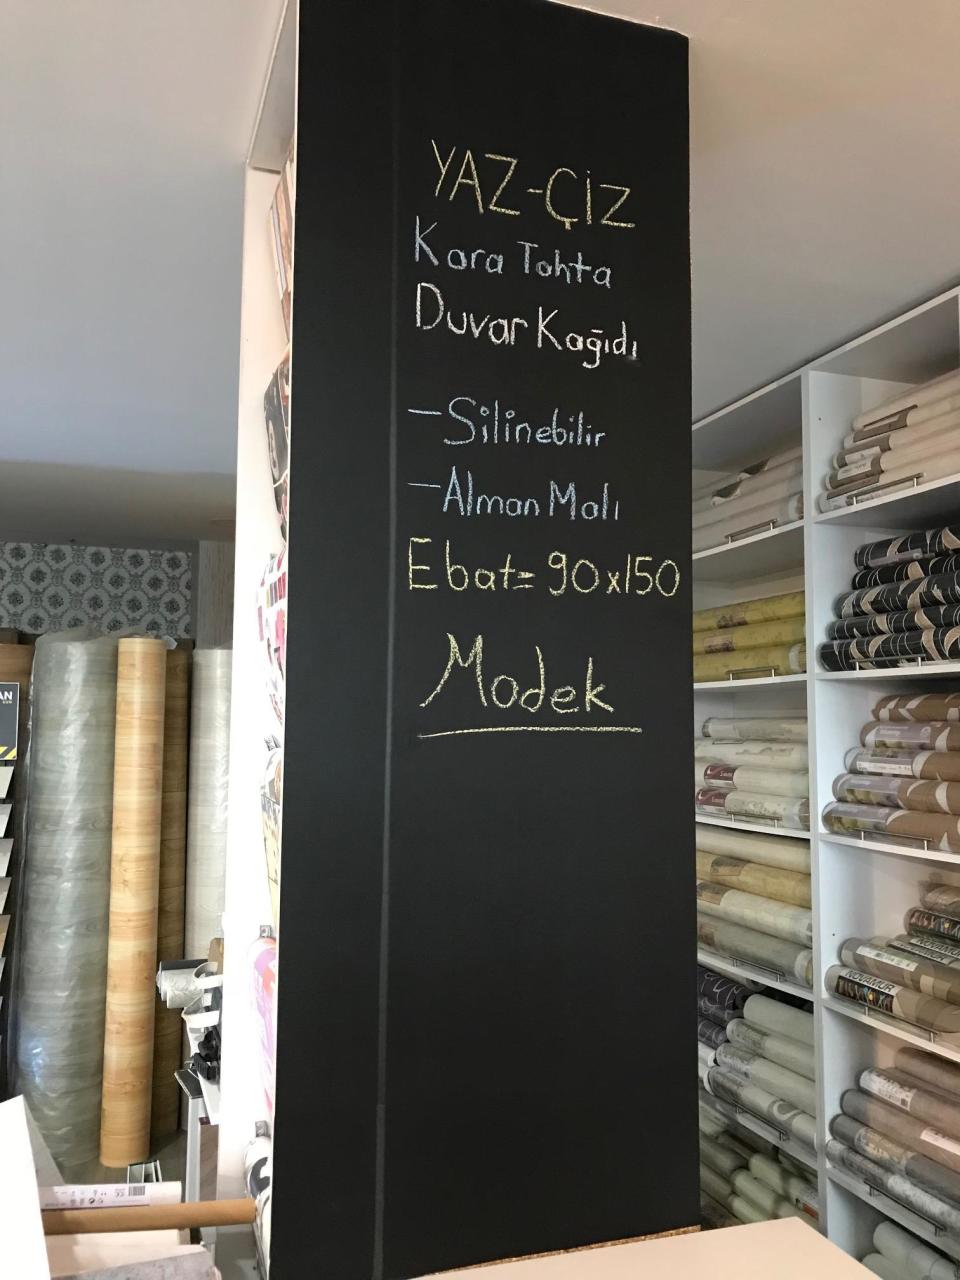 YAZ-ÇİZ
Kara Tahta
Duvar Kağıdı
-Silinebilir
-Alman Malı
Ebat= 90x150
Modek
AN
NOVAMUR